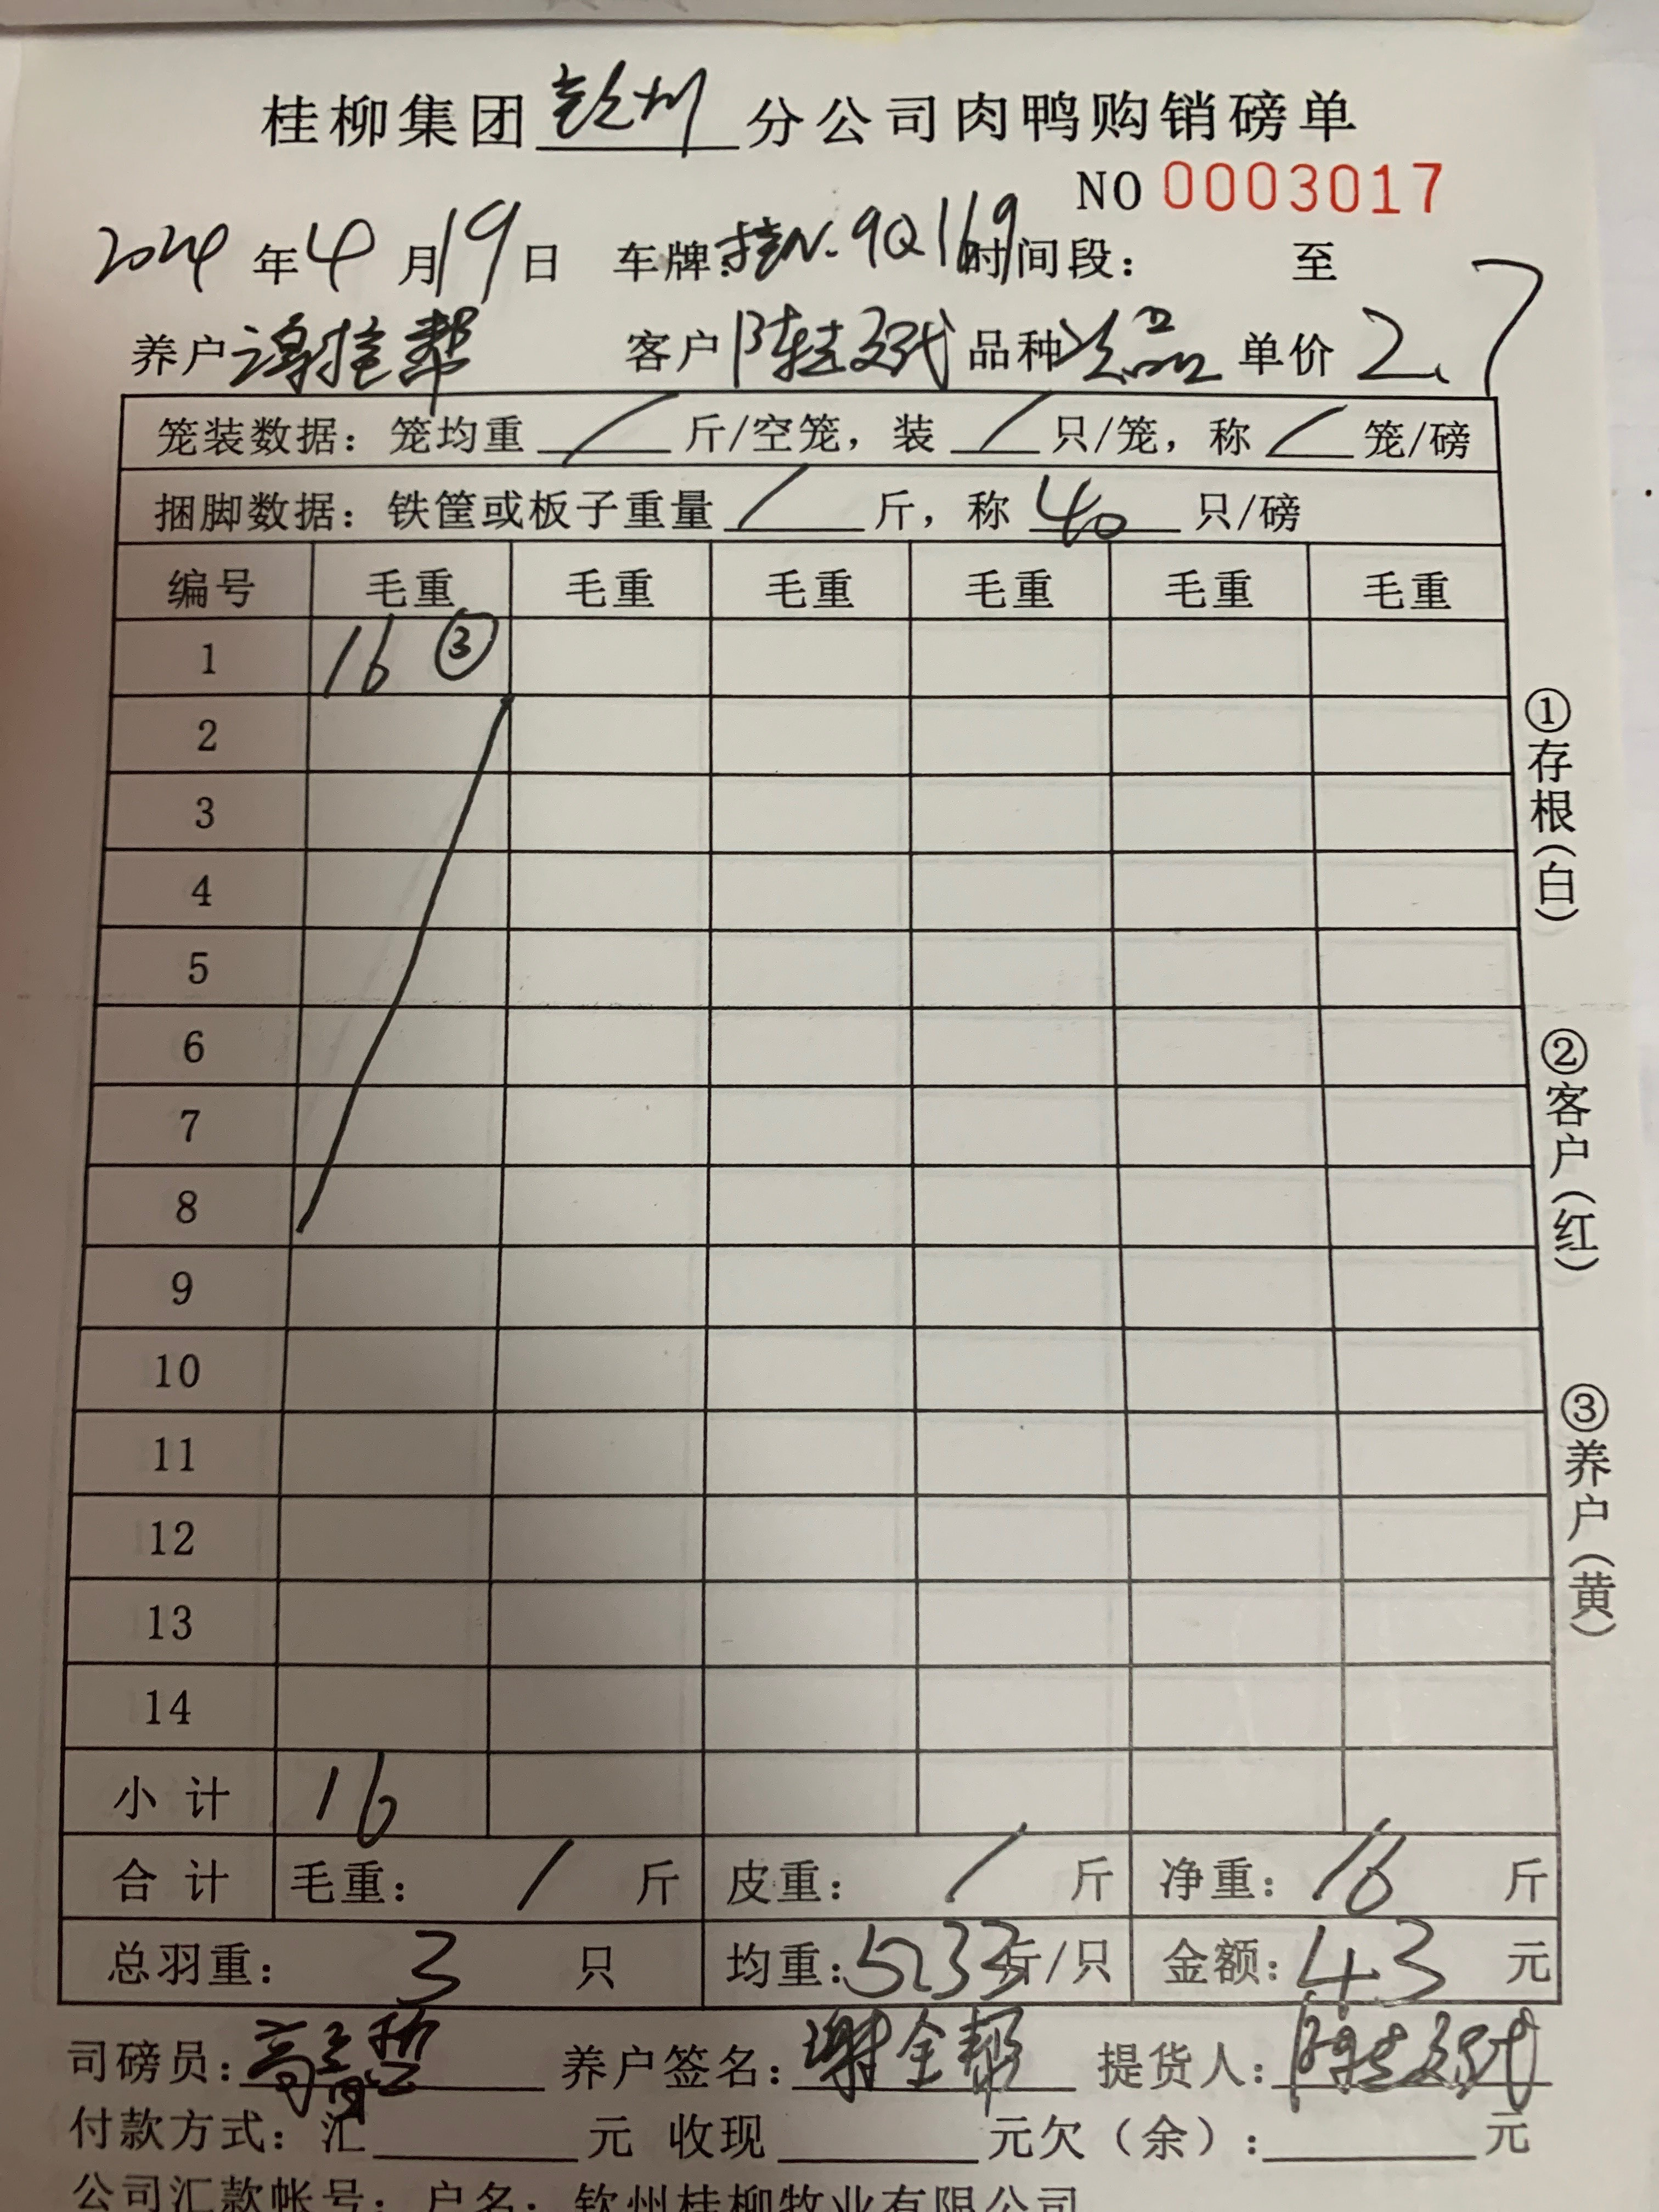 桂柳集团钦州分公司肉鸭购销磅单
NO 0003017
2024年4月19日 车牌:桂N.9Q169时间段: 至
养户 客户 品种次品 单价2.7
笼装数据:笼均重/斤/空笼,装/只/笼,称/笼/磅
捆脚数据:铁筐或板子重量/斤,称40只/磅
编号 毛重 毛重 毛重 毛重 毛重 毛重
1 16 ③
2
3
4
5
6
7
8
9
10
11
12
13
14
小计 16
合计 毛重:/斤 皮重:/斤 净重:16斤
总羽重:3只 均重:5.33斤/只 金额:43元
司磅员: 养户签名:谢全帮 提货人:
付款方式:汇 元 收现 元欠(余): 元
公司汇款帐号:户名:钦州桂柳牧业有限公司
①存根(白)
②客户(红)
③养户(黄)